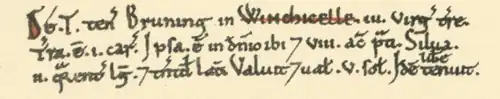 De. T. ten̄ Bruning in Winchicelle. iii. virg̃ t̃re.
T̃ra. ē. i. car̃. Ipsa. ē in dn̄io ibi ⁊ viii. ac̃ p̃ti. Silua.
ii. q̃rent̃ lg̃. ⁊ tñtd̃ lat̃. Valuit ⁊ ual̃. v. sol̃. Idē libe tenuit.